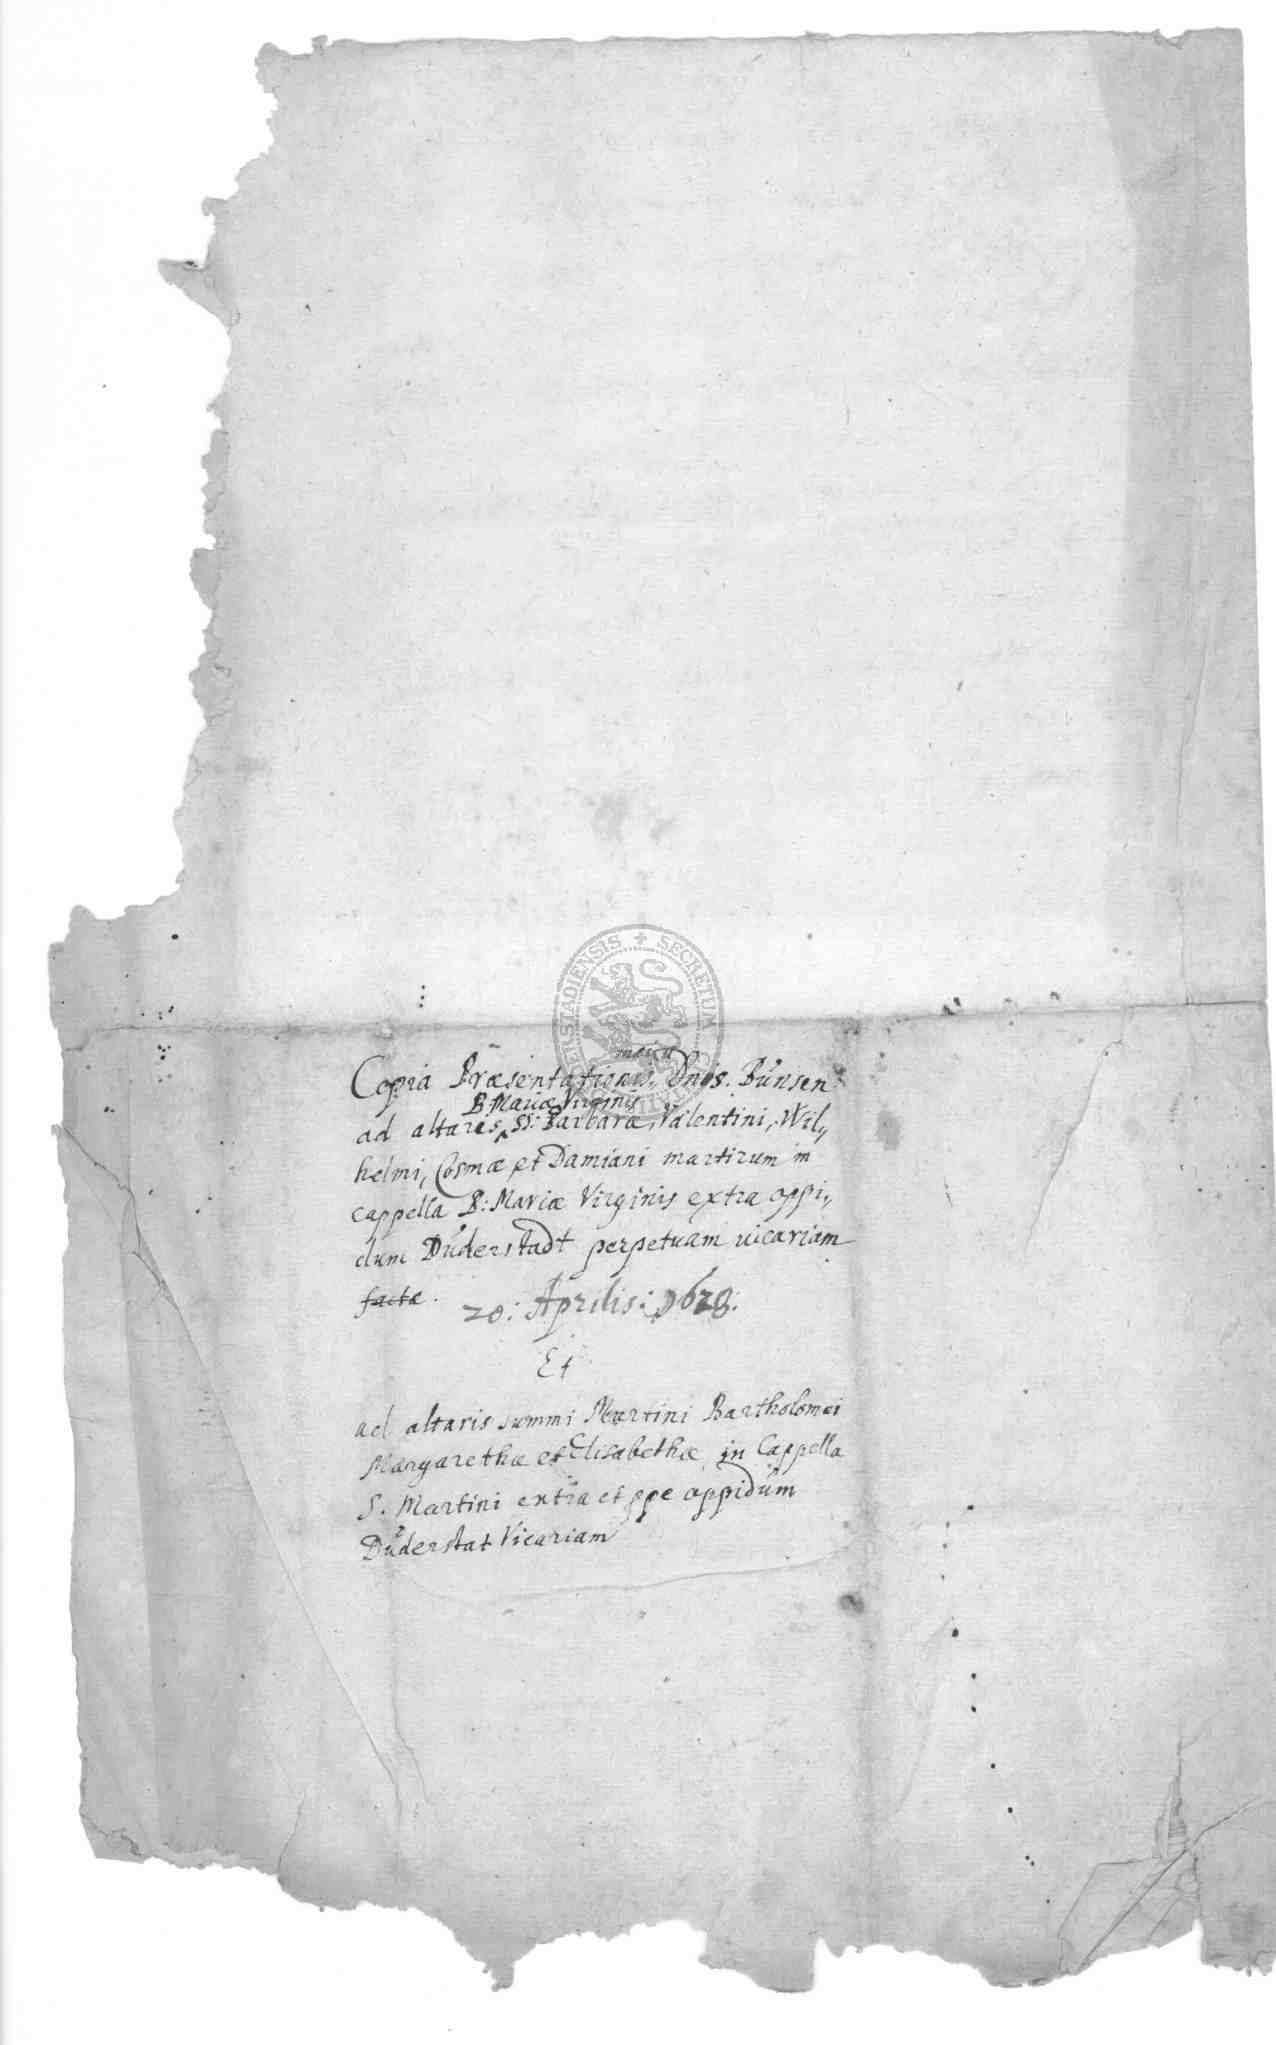 Copia Præsentationis Dnōs. Bůnsen
B Mariæ Virginis
ad altaris SS: Barbaræ, Valentini, Wil„
helmi, Cosmæ et Damiani martirum in
cappella B: Mariæ Virginis extra oppi„
dum Důderstadt perpetuam uicariam
factæ.
20: Aprilis: 1628:
Et
ad altaris summi Martini Bartholomei
Margarethæ et Elisabethæ in Cappella
S. Martini extra et ppe oppidům
Důderstat Vicariam
SECRETUM